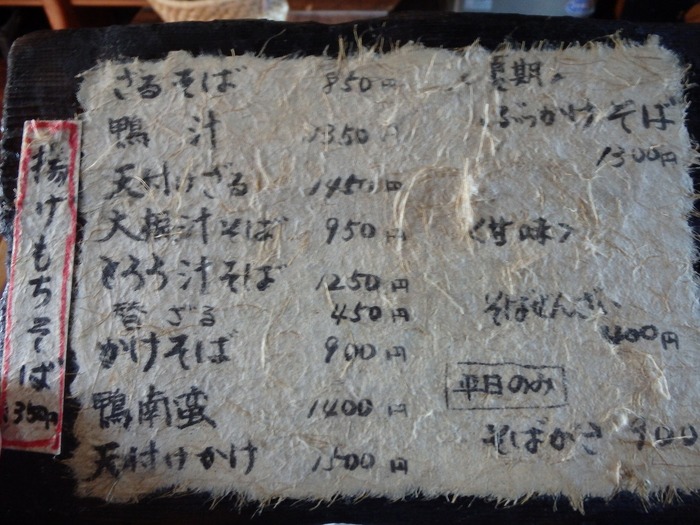 ざるそば 850円
鴨 汁 1350円
天付けざる 1450円
大根汁そば 950円
とろろ汁そば 1250円
替ざる 450円
かけそば 900円
鴨南蛮 1400円
天付けかけ 1500円
夏期
ぶっかけそば
1300円
〈甘味〉
そばぜんざい
400円
平日のみ
そばがき 900
揚げもちそば
1350円